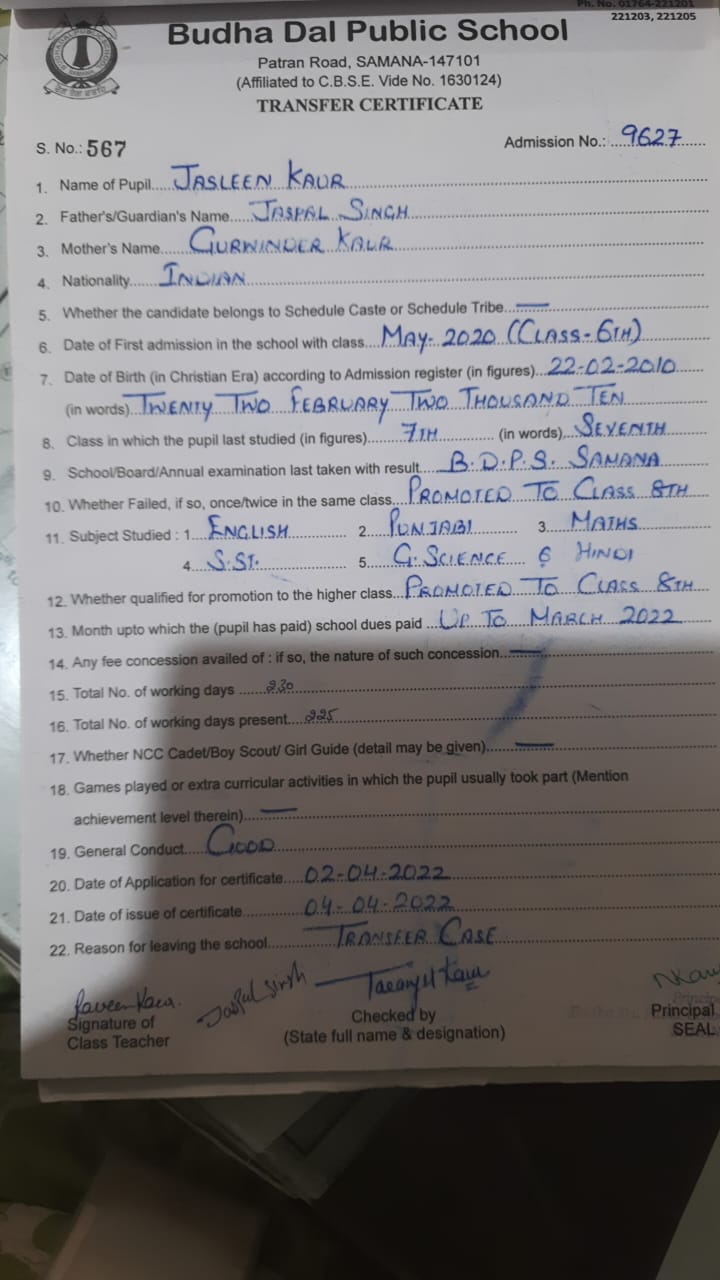 Ph. No. 01764-221201
221203, 221205
Budha Dal Public School
Patran Road, SAMANA-147101
(Affiliated to C.B.S.E. Vide No. 1630124)
TRANSFER CERTIFICATE
S. No.: 567 Admission No.: 9627
1. Name of Pupil JASLEEN KAUR
2. Father's/Guardian's Name JASPAL SINGH
3. Mother's Name GURWINDER KAUR
4. Nationality INDIAN
5. Whether the candidate belongs to Schedule Caste or Schedule Tribe —
6. Date of First admission in the school with class MAY-2020 (CLASS-6TH)
7. Date of Birth (in Christian Era) according to Admission register (in figures) 22-02-2010
(in words) TWENTY TWO FEBRUARY TWO THOUSAND TEN
8. Class in which the pupil last studied (in figures) 7TH (in words) SEVENTH
9. School/Board/Annual examination last taken with result B.D.P.S. SAMANA
10. Whether Failed, if so, once/twice in the same class PROMOTED TO CLASS 8TH
11. Subject Studied : 1 ENGLISH 2. PUNJABI 3. MATHS
4. S.ST. 5. G.SCIENCE 6 HINDI
12. Whether qualified for promotion to the higher class PROMOTED TO CLASS 8TH
13. Month upto which the (pupil has paid) school dues paid UP TO MARCH 2022
14. Any fee concession availed of : if so, the nature of such concession —
15. Total No. of working days 230
16. Total No. of working days present 225
17. Whether NCC Cadet/Boy Scout/ Girl Guide (detail may be given) —
18. Games played or extra curricular activities in which the pupil usually took part (Mention
achievement level therein) —
19. General Conduct GOOD
20. Date of Application for certificate 02-04-2022
21. Date of issue of certificate 04-04-2022
22. Reason for leaving the school TRANSFER CASE
Jaspal Singh
Signature of Class Teacher
Checked by
(State full name & designation)
Principal
SEAL